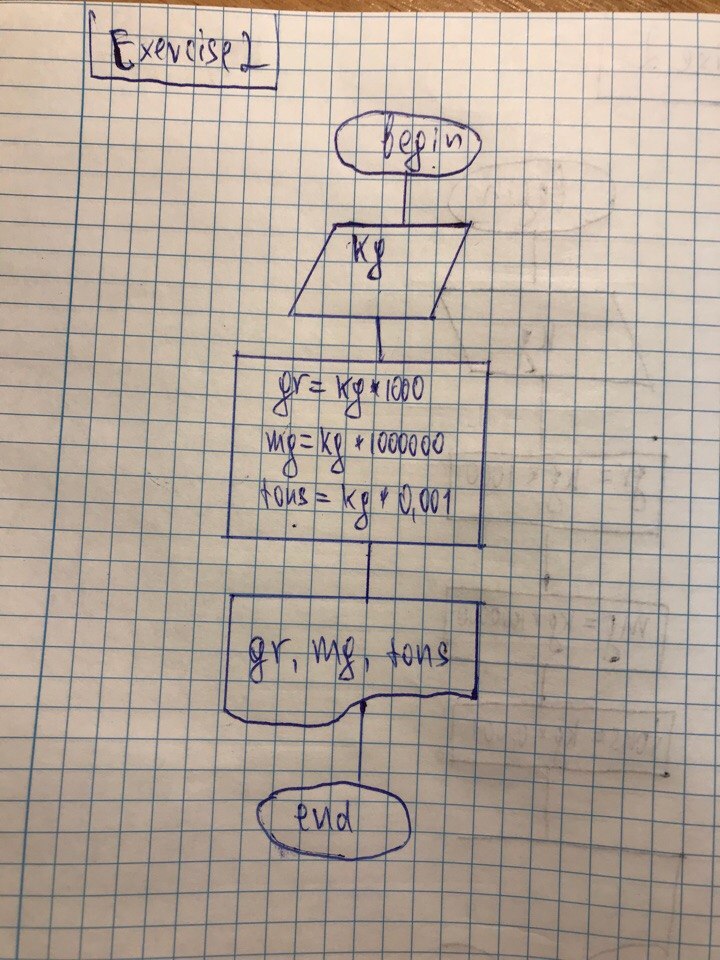 Exercise 2
begin
kg
gr = kg * 1000
mg = kg * 1000000
tons = kg * 0,001
gr, mg, tons
end